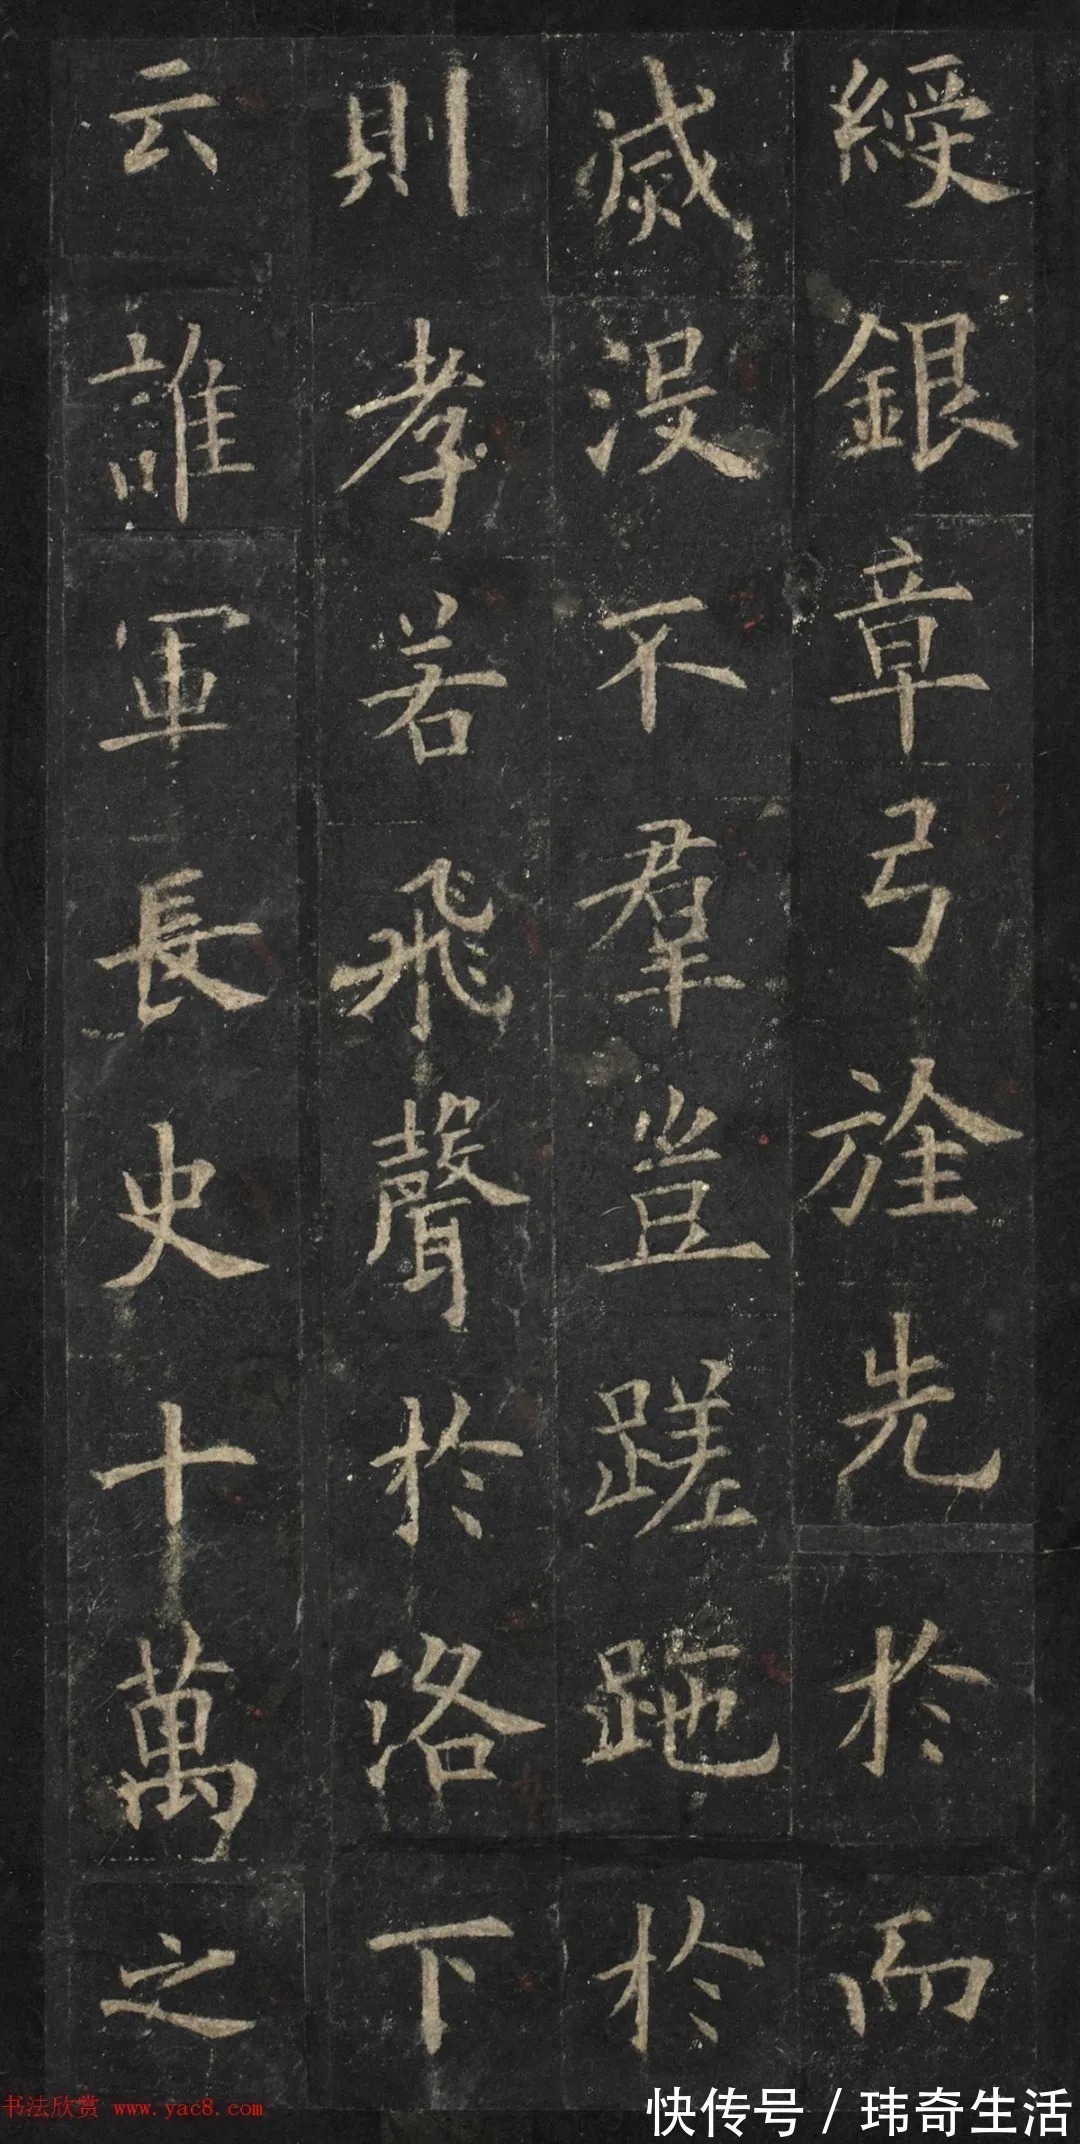 綬銀章弓旌先於而
滅沒不羣豈蹉跎於
則孝若飛聲於洛下
云誰軍長史十萬之
书法欣赏 www.yac8.com
快传号 / 玮奇生活